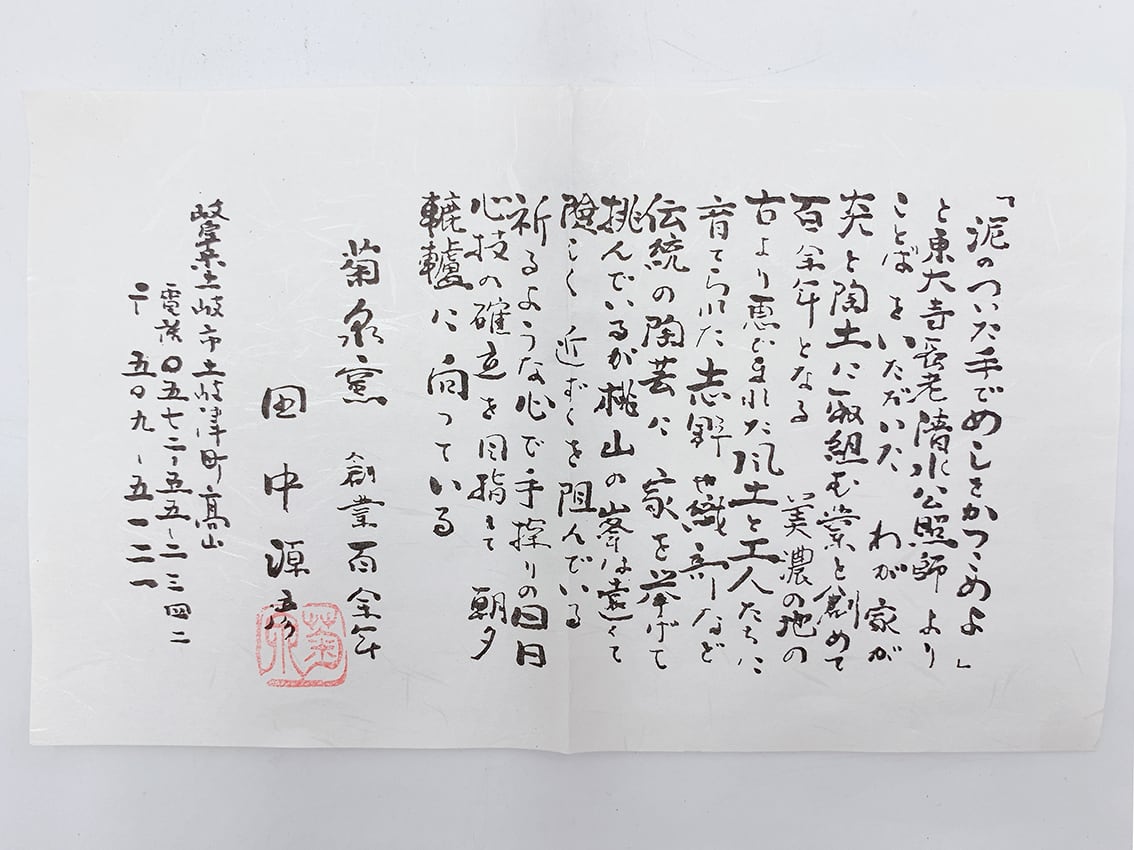 「泥のついた手でめしをかっこめよ」
と東大寺長老清水公照師より
ことばをいただいた わが家が
炎と陶土に取組む業を創めて
百余年となる 美濃の地の
古より恵まれた風土と工人たちに
育てられた志野や織部など
伝統の陶芸に家を挙げて
挑んでいるが桃山の峯は遠くて
険しく 近ずくを阻んでいる
祈るような心で手探りの日日
心技の確立を目指して 朝夕
轆轤に向っている
菊泉窯 創業百余年
田中源彦
菊泉
岐阜県土岐市土岐津町高山
電話〇五七二-五五-二三四二
〒五〇九-五一二一